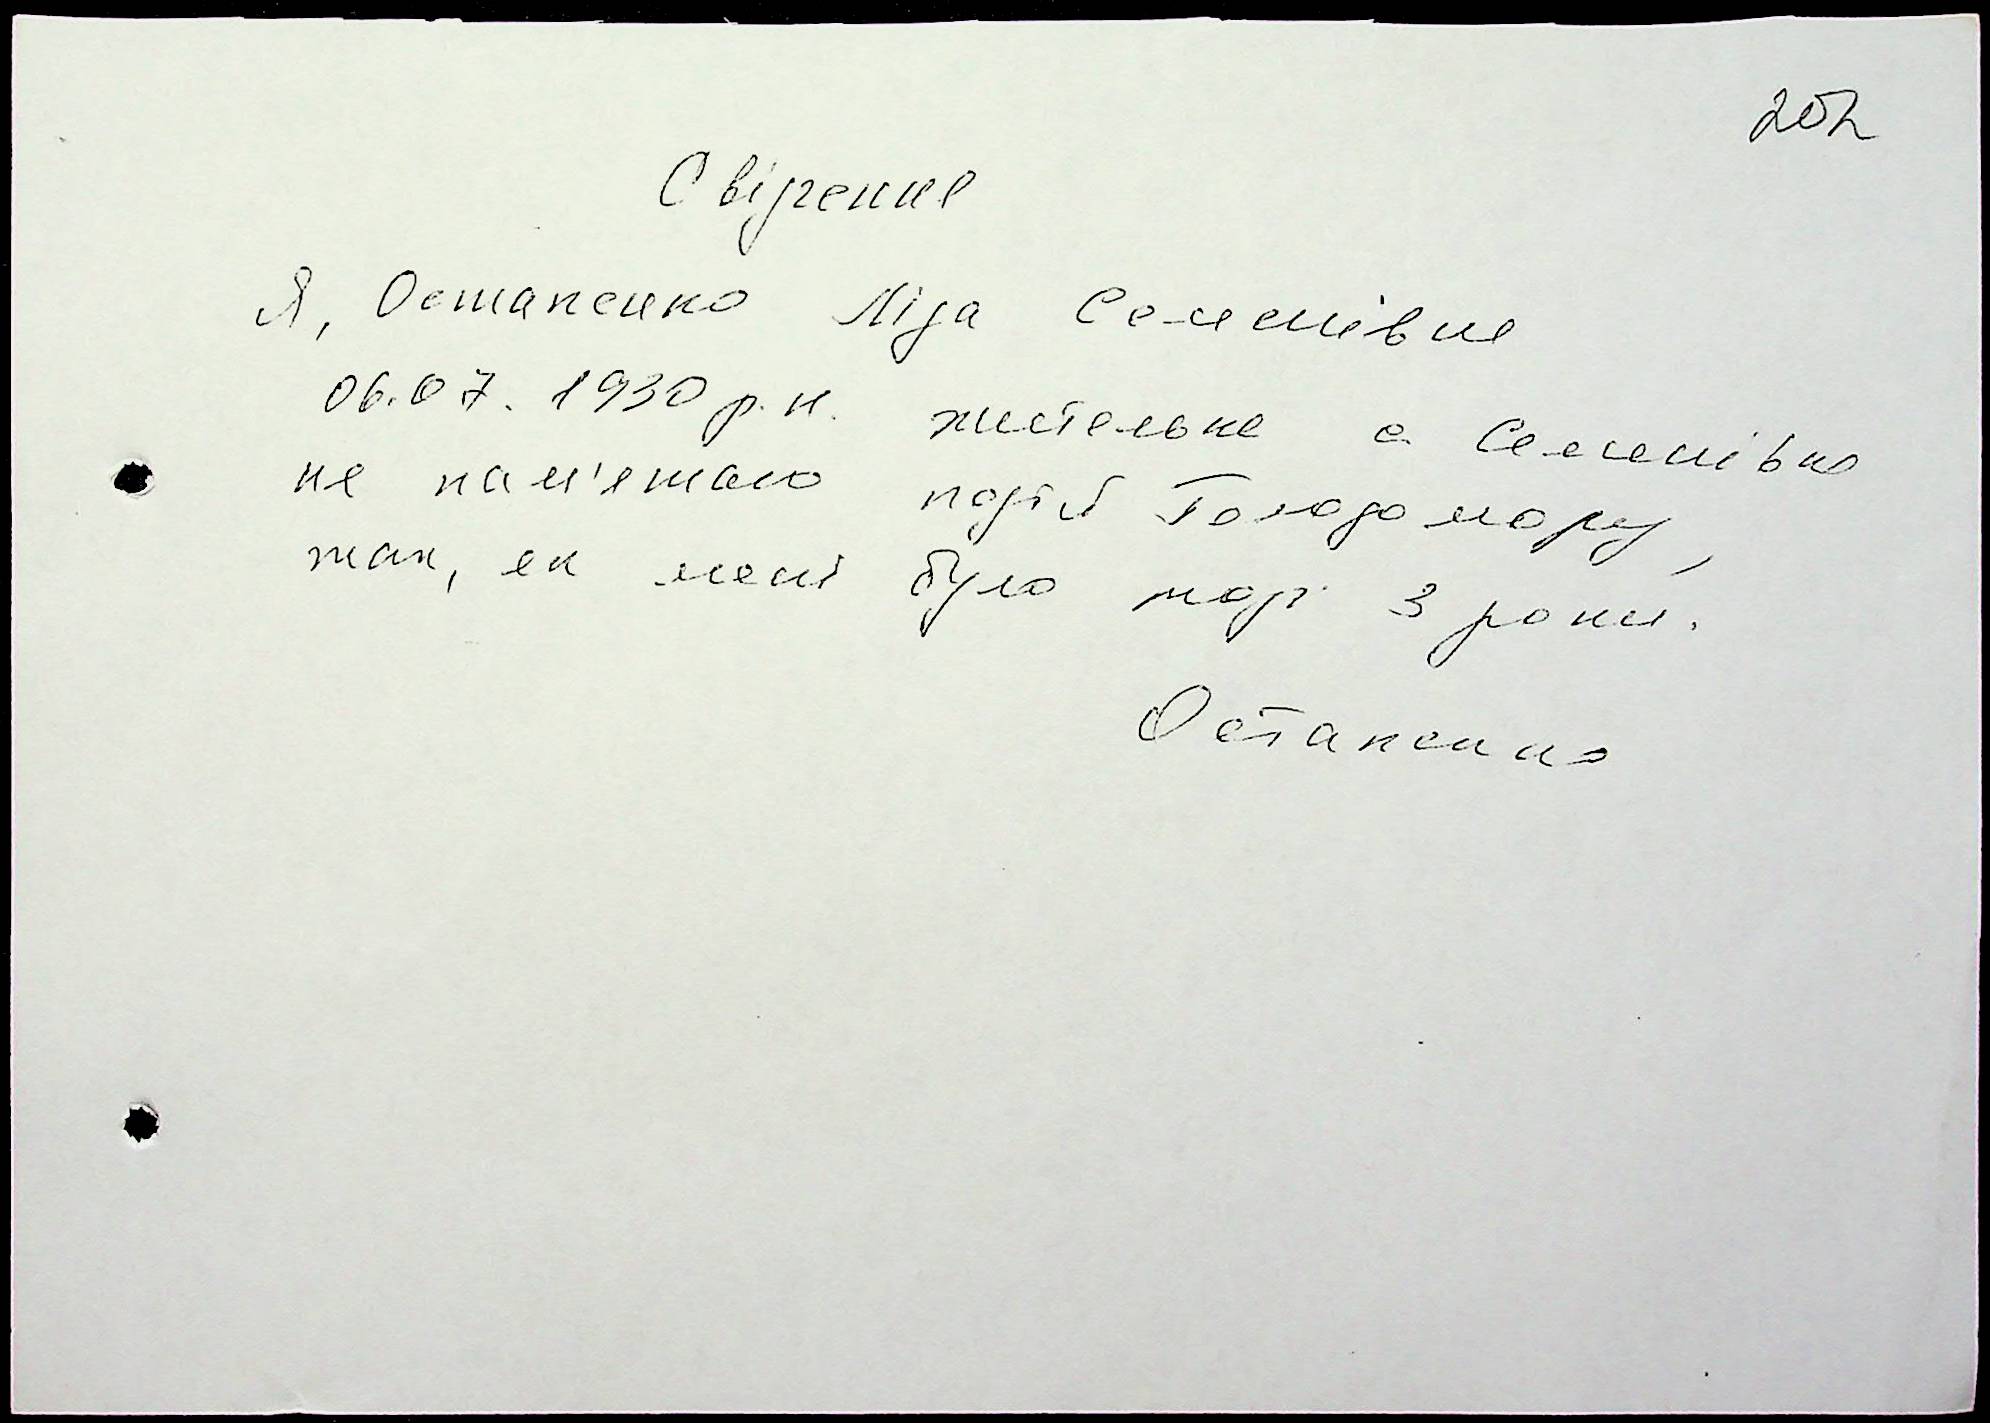 202
Свідчення
Я, Остапенко Ліда Семенівна
06.07.1930 р.н. жителька с. Семенівка
не пам'ятаю подій Голодомору,
так, як мені було тоді 3 роки.
Остапенко